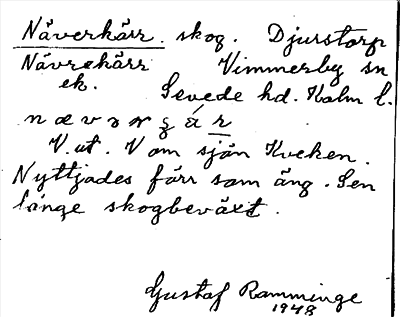 Näverkärr. skog. Djurstorp
Nävrekärr Vimmerby sn
ek. Sevede hd. Kalm l.
V. ut. V om sjön Kveken.
Nyttjades förr som äng. Sen
länge skogbeväxt.
Gustaf Ramminge
1948